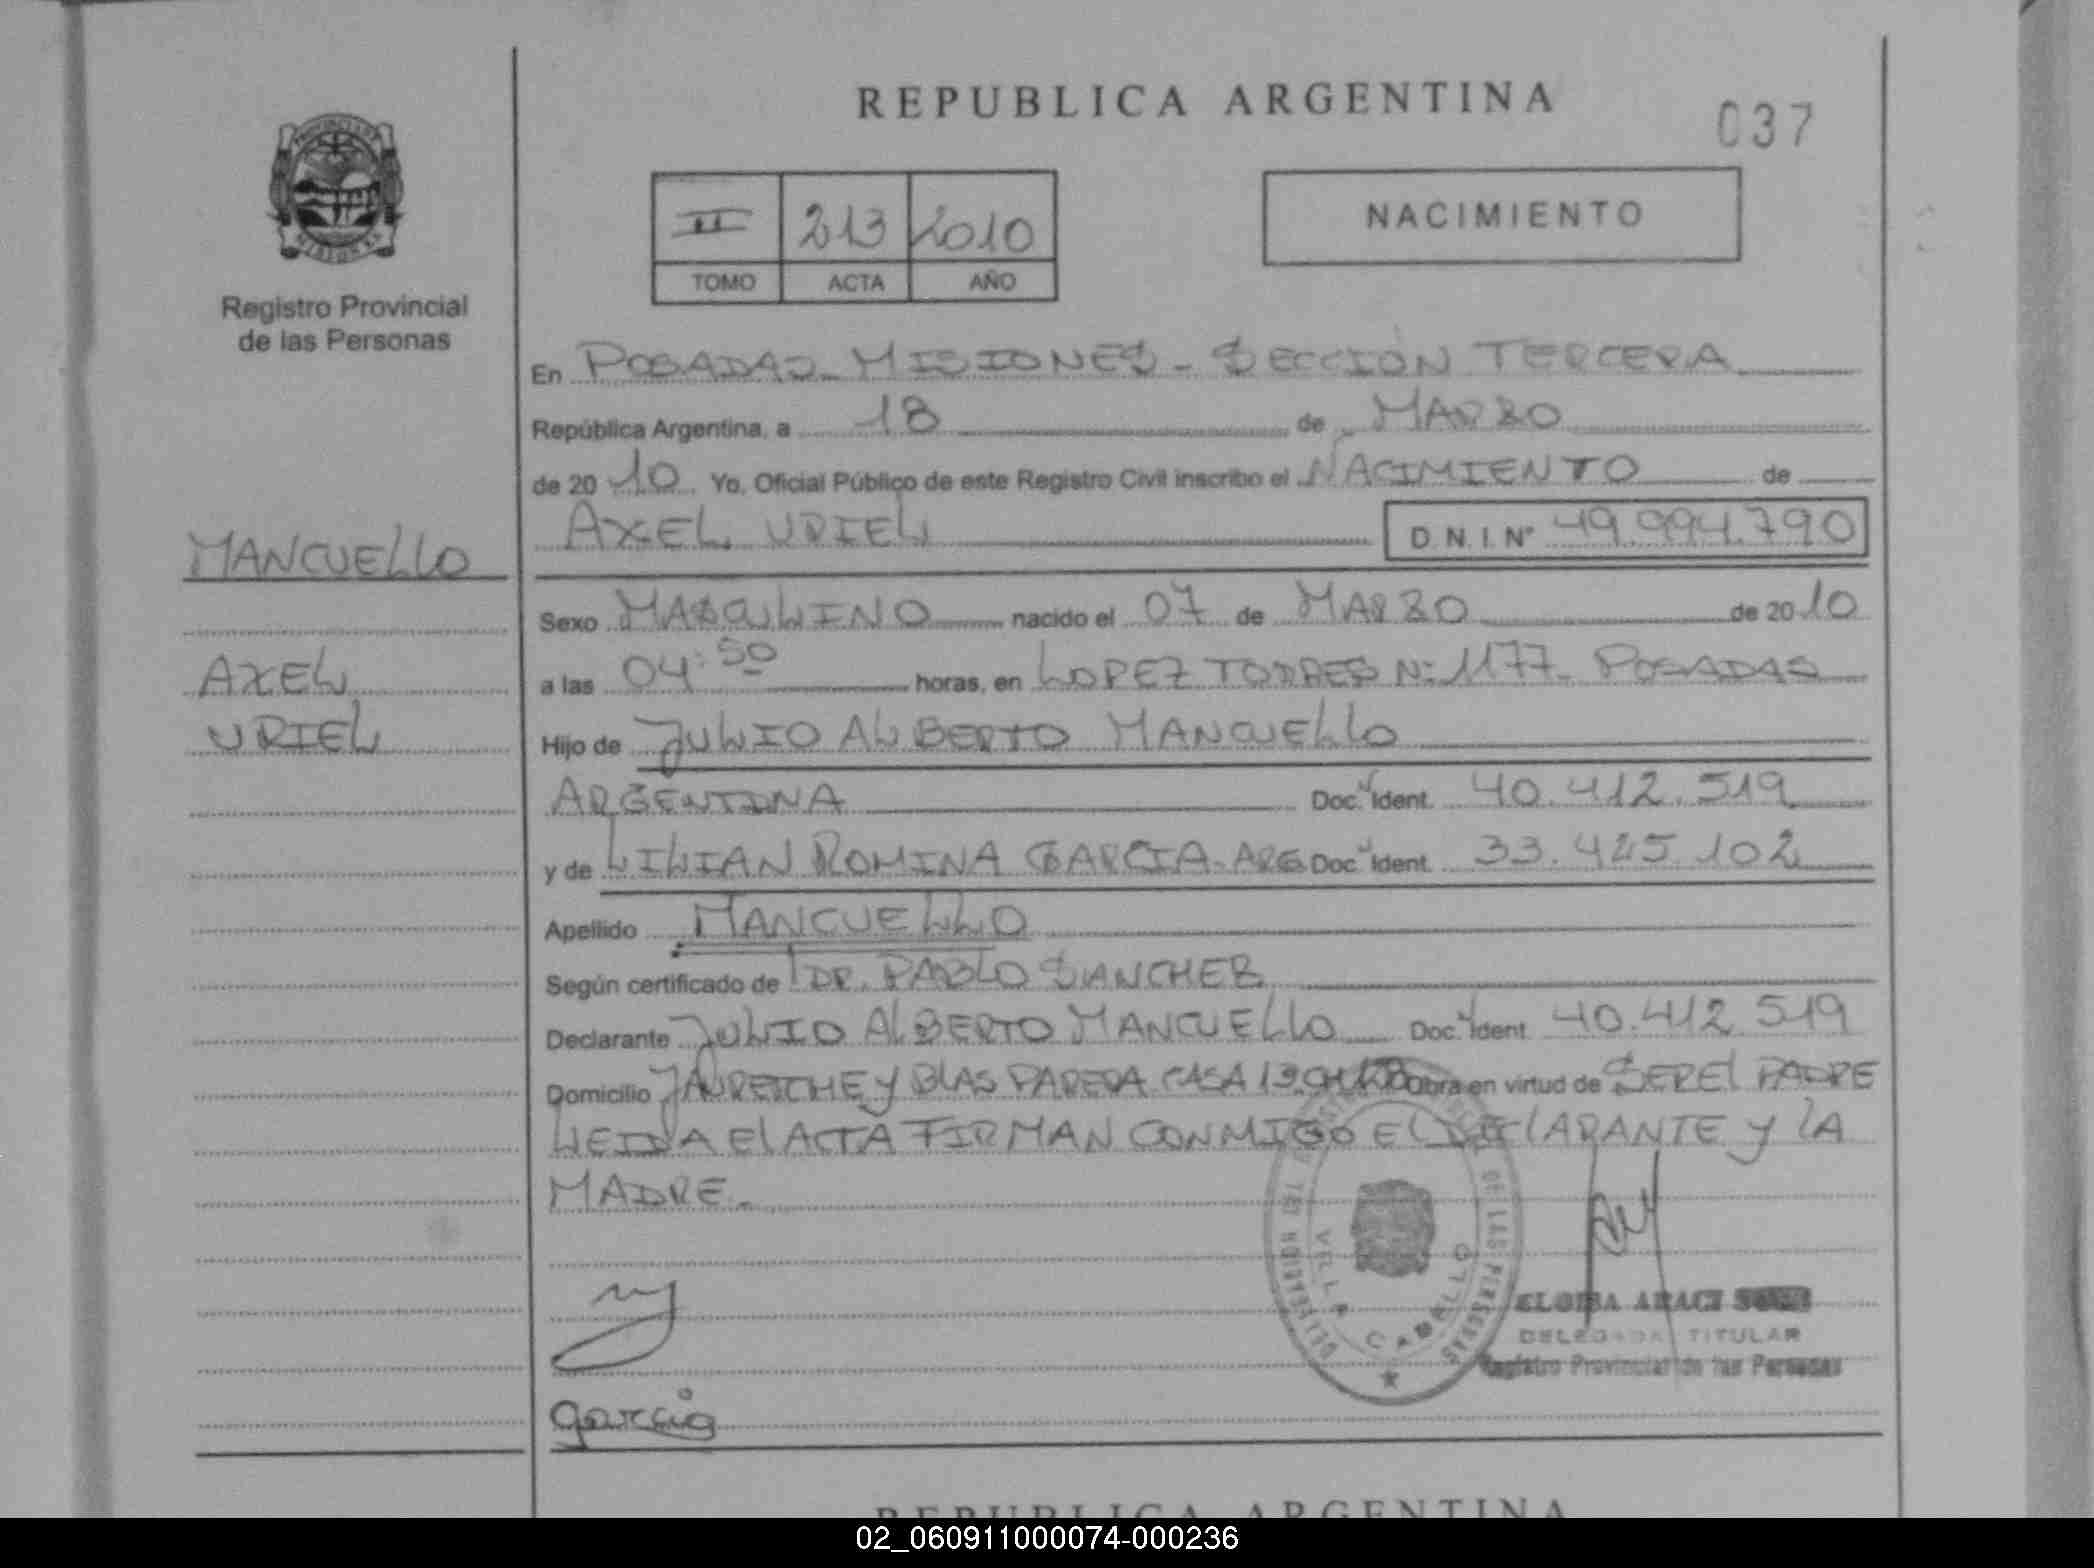 REPUBLICA ARGENTINA
037
II 213 2010
TOMO ACTA AÑO
NACIMIENTO
Registro Provincial
de las Personas
En POSADAS - MISIONES - SECCION TERCERA
República Argentina, a 18 de MARZO
de 2010 Yo, Oficial Público de este Registro Civil inscribo el NACIMIENTO de
AXEL URIEL D.N.I. Nº 49.994.790
MANCUELLO
AXEL
URIEL
Sexo MASCULINO nacido el 07 de MARZO de 2010
a las 04:50 horas, en LOPEZ TORRES Nº 1177 - POSADAS
Hijo de JULIO ALBERTO MANCUELLO
ARGENTINA Doc. Ident. 40.412.519
y de LILIAN ROMINA GARCIA - ARG Doc. Ident. 33.425.102
Apellido MANCUELLO
Según certificado de DR. PABLO SANCHEZ
Declarante JULIO ALBERTO MANCUELLO Doc. Ident. 40.412.519
Domicilio JAURETCHE Y BLAS PARERA CASA 19 Obra en virtud de SER EL PADRE
LEIDA EL ACTA FIRMAN CONMIGO EL DECLARANTE Y LA
MADRE.
DELEGACION DE LAS PERSONAS
VILLA CABELLO
ELOISA ARACI
DELEGADA TITULAR
Registro Provincial de las Personas
Garcia
REPUBLICA ARGENTINA
02_060911000074-000236